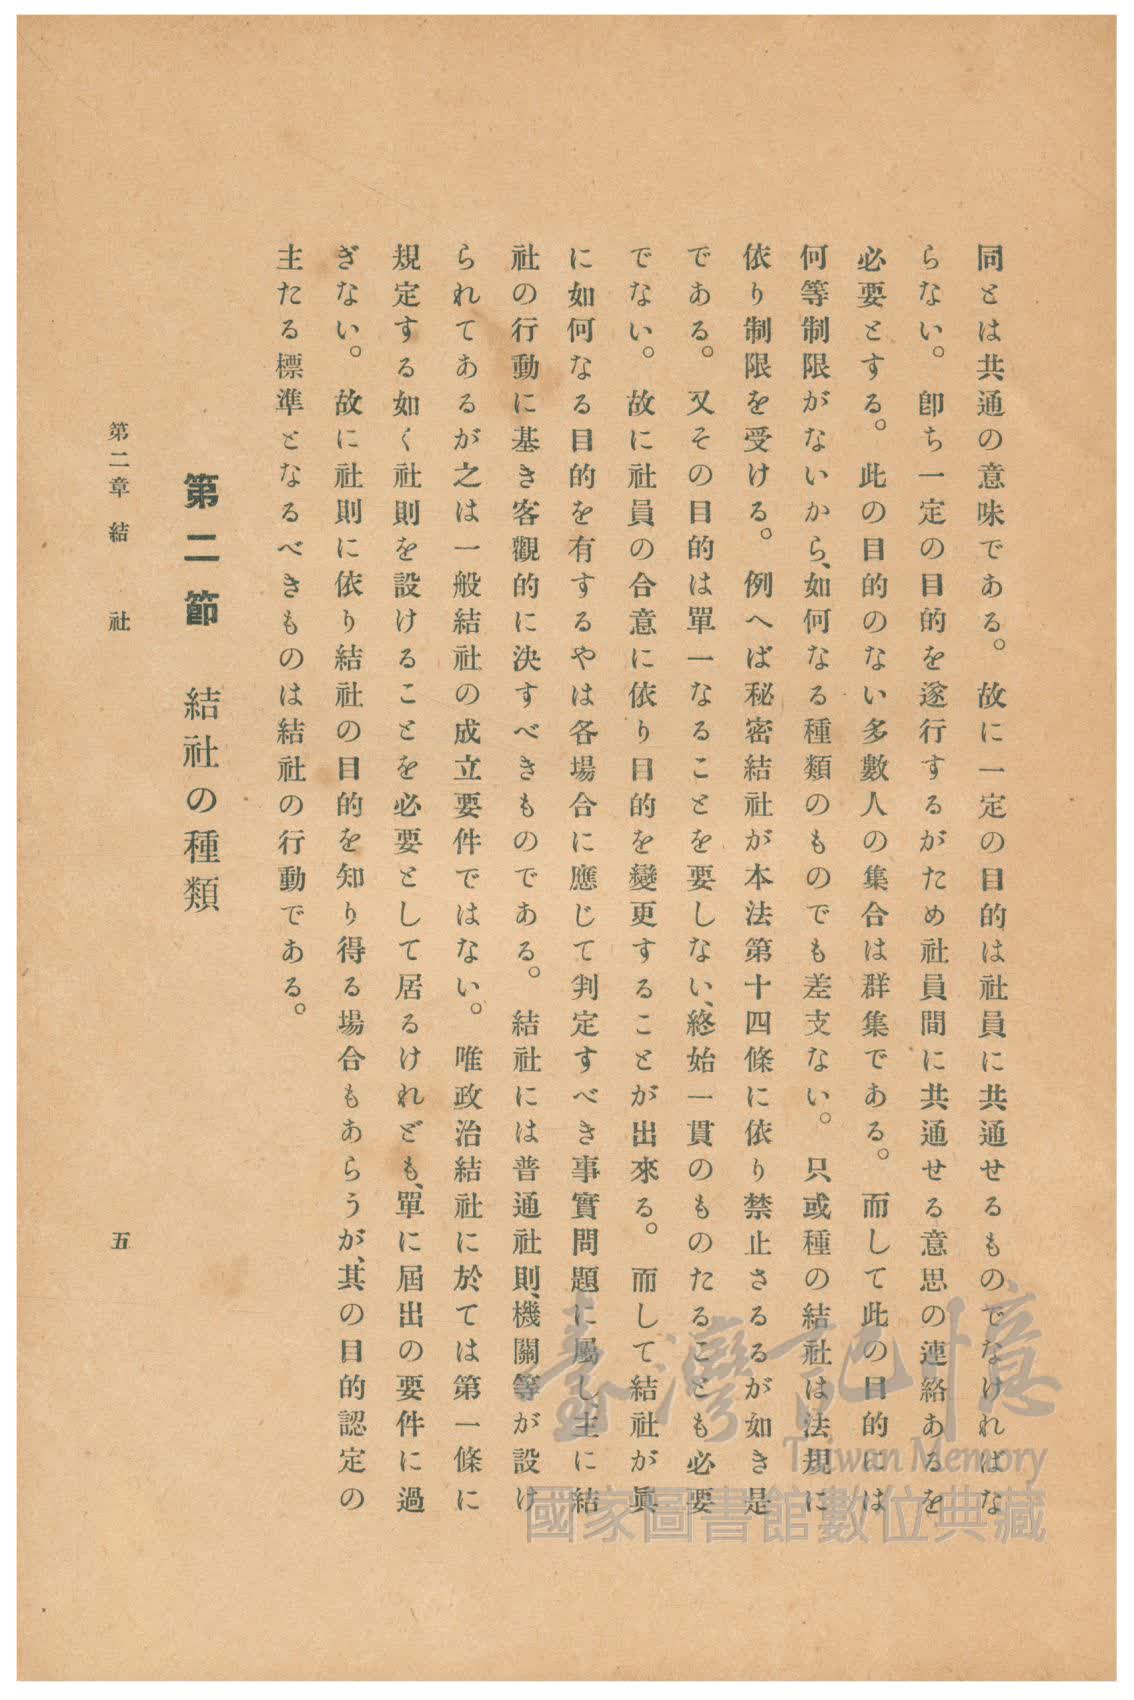 同とは共通の意味である。故に一定の目的は社員に共通せるものでなければな
らない。卽ち一定の目的を遂行するがため社員間に共通せる意思の連絡あるを
必要とする。此の目的のない多數人の集合は群集である。而して此の目的には
何等制限がないから、如何なる種類のものでも差支ない。只或種の結社は法規に
依り制限を受ける。例へば秘密結社が本法第十四條に依り禁止さるるが如き是
である。又その目的は單一なることを要しない、終始一貫のものたることも必要
でない。故に社員の合意に依り目的を變更することが出來る。而して結社が眞
に如何なる目的を有するやは各場合に應じて判定すべき事實問題に屬し、主に結
社の行動に基き客觀的に決すべきものである。結社には普通社則、機關等が設け
られてあるが之は一般結社の成立要件ではない。唯政治結社に於ては第一條に
規定する如く社則を設けることを必要として居るけれども、單に屆出の要件に過
ぎない。故に社則に依り結社の目的を知り得る場合もあらうが、其の目的認定の
主たる標準となるべきものは結社の行動である。
第二節 結社の種類
第二章 結 社
五
臺灣記憶
Taiwan Memory
國家圖書館數位典藏